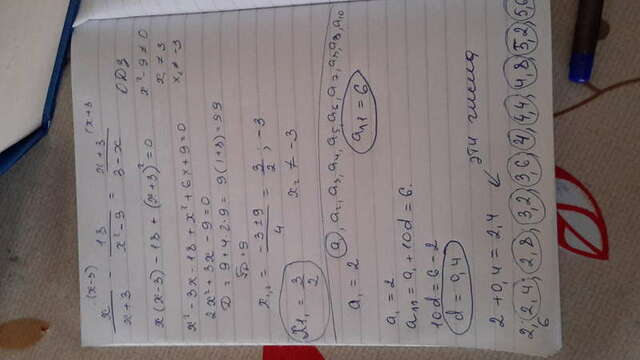 (x-3) (x+3
x/(x+3) - 18/(x²-9) = (x+3)/(3-x) ОДЗ
x²-9≠0
x ≠ 3
x₂ ≠ -3
x(x-3) - 18 + (x+3)² = 0
x² - 3x - 18 + x² + 6x + 9 = 0
2x² + 3x - 9 = 0
D = 9 + 4·2·9 = 9(1+8) = 99
√D = 9
x₁,₂ = (-3±9)/4 = 3/2 ; -3
x₁ = 3/2 x₂ ≠ -3
a₁, a₂, a₃, a₄, a₅, a₆, a₇, a₈, a₉, a₁₀
a₁ = 2 a₁₁ = 6
a₁ = 2
a₁₁ = a₁ + 10d = 6
10d = 6 - 2
d = 0,4
2 + 0,4 = 2,4 эти числа
2; 2,4; 2,8; 3,2; 3,6; 4; 4,4; 4,8; 5,2; 5,6
6